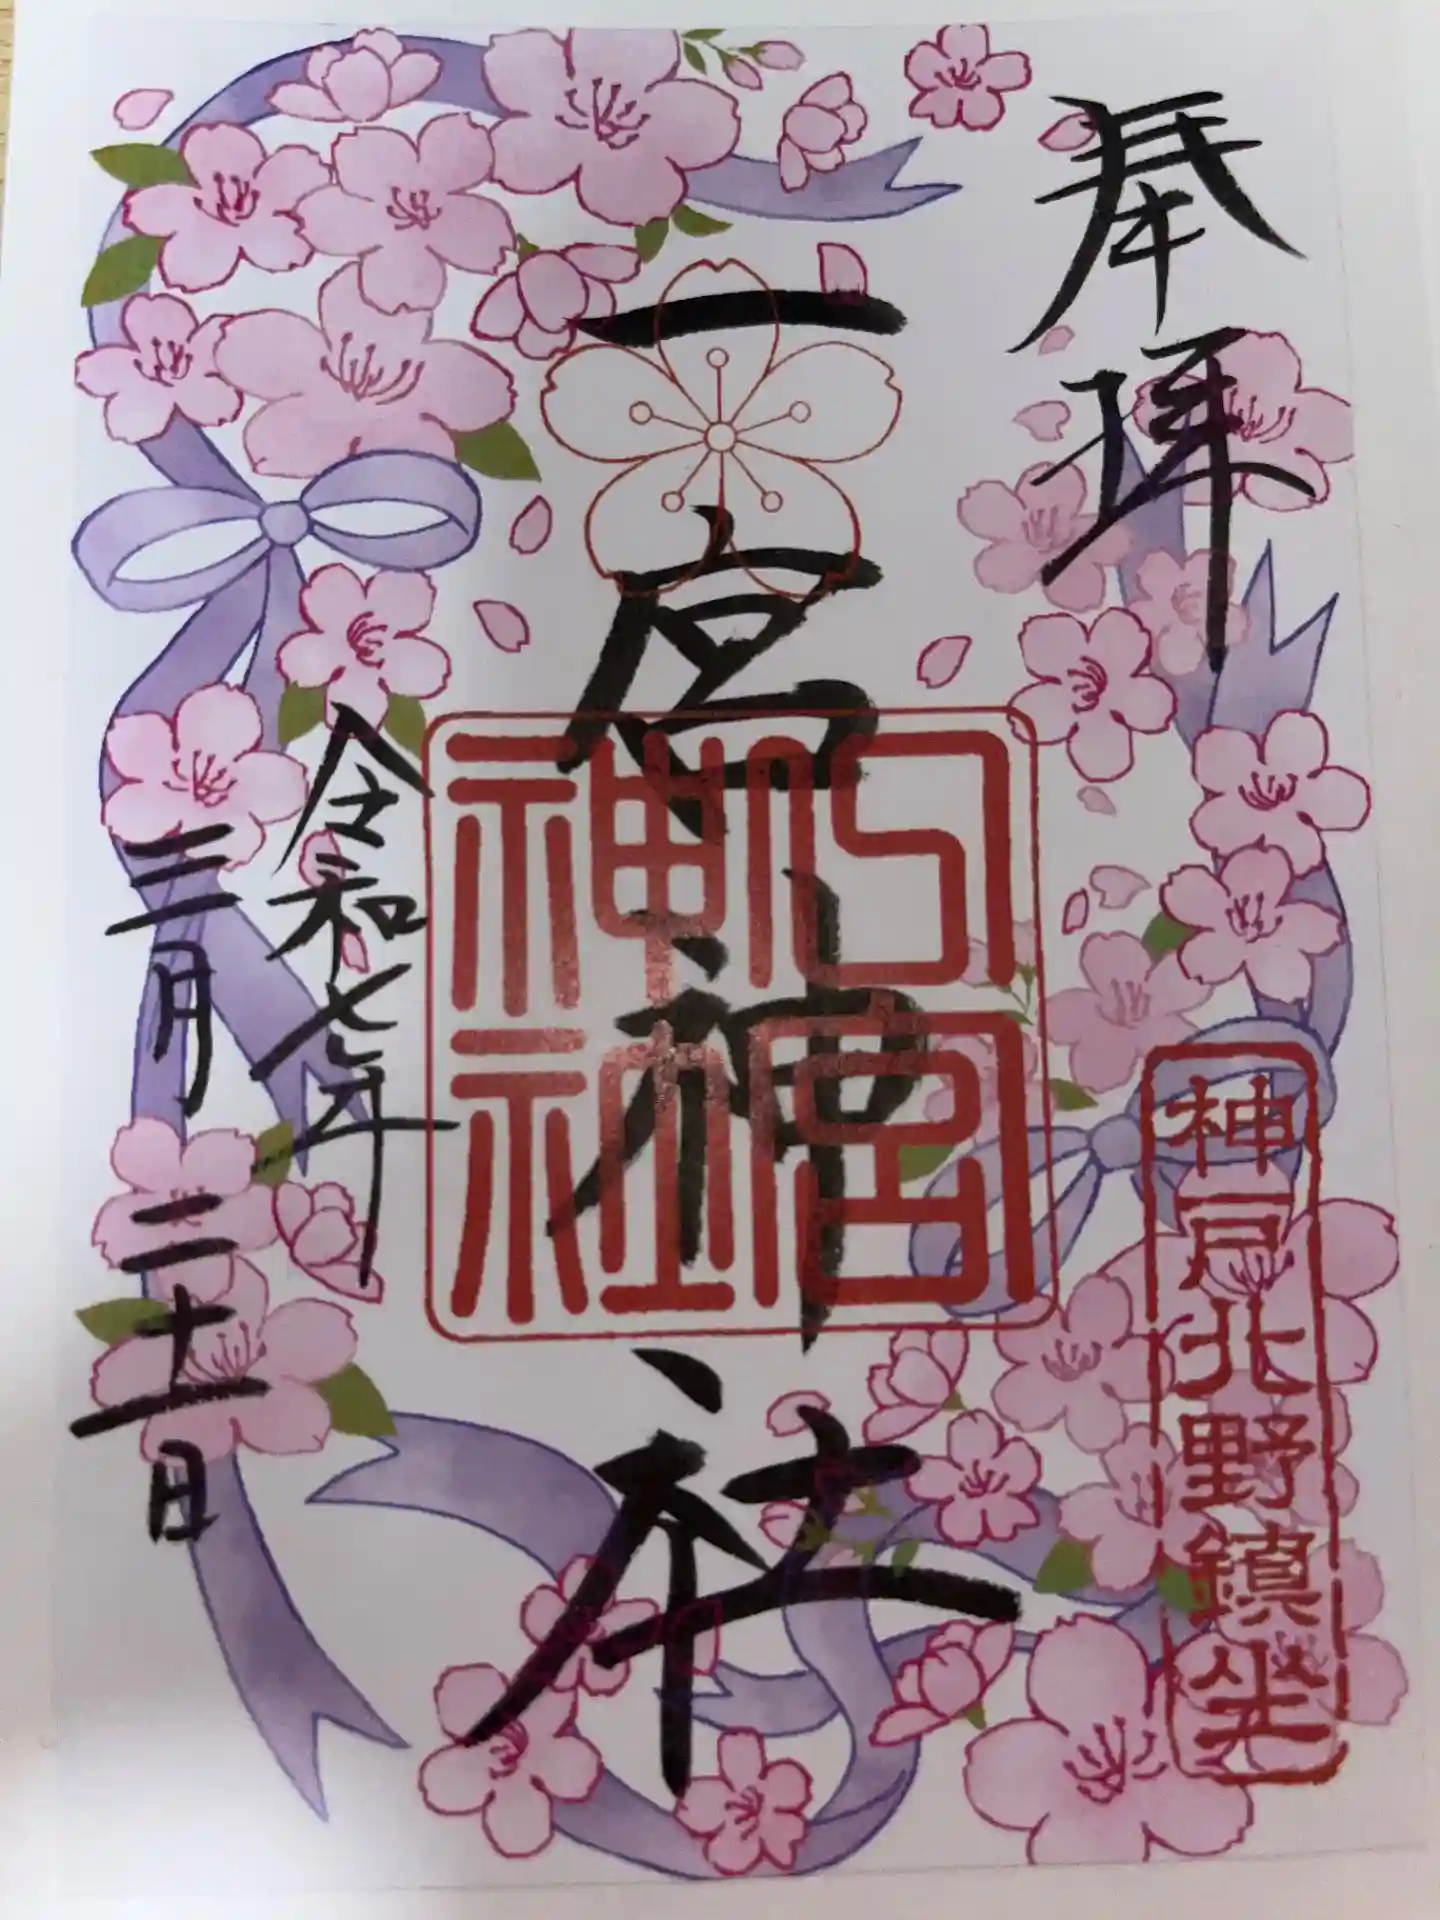 奉拝
神戸北野鎮座
一宮神社
宮
神社
令和七年
三月二十一日